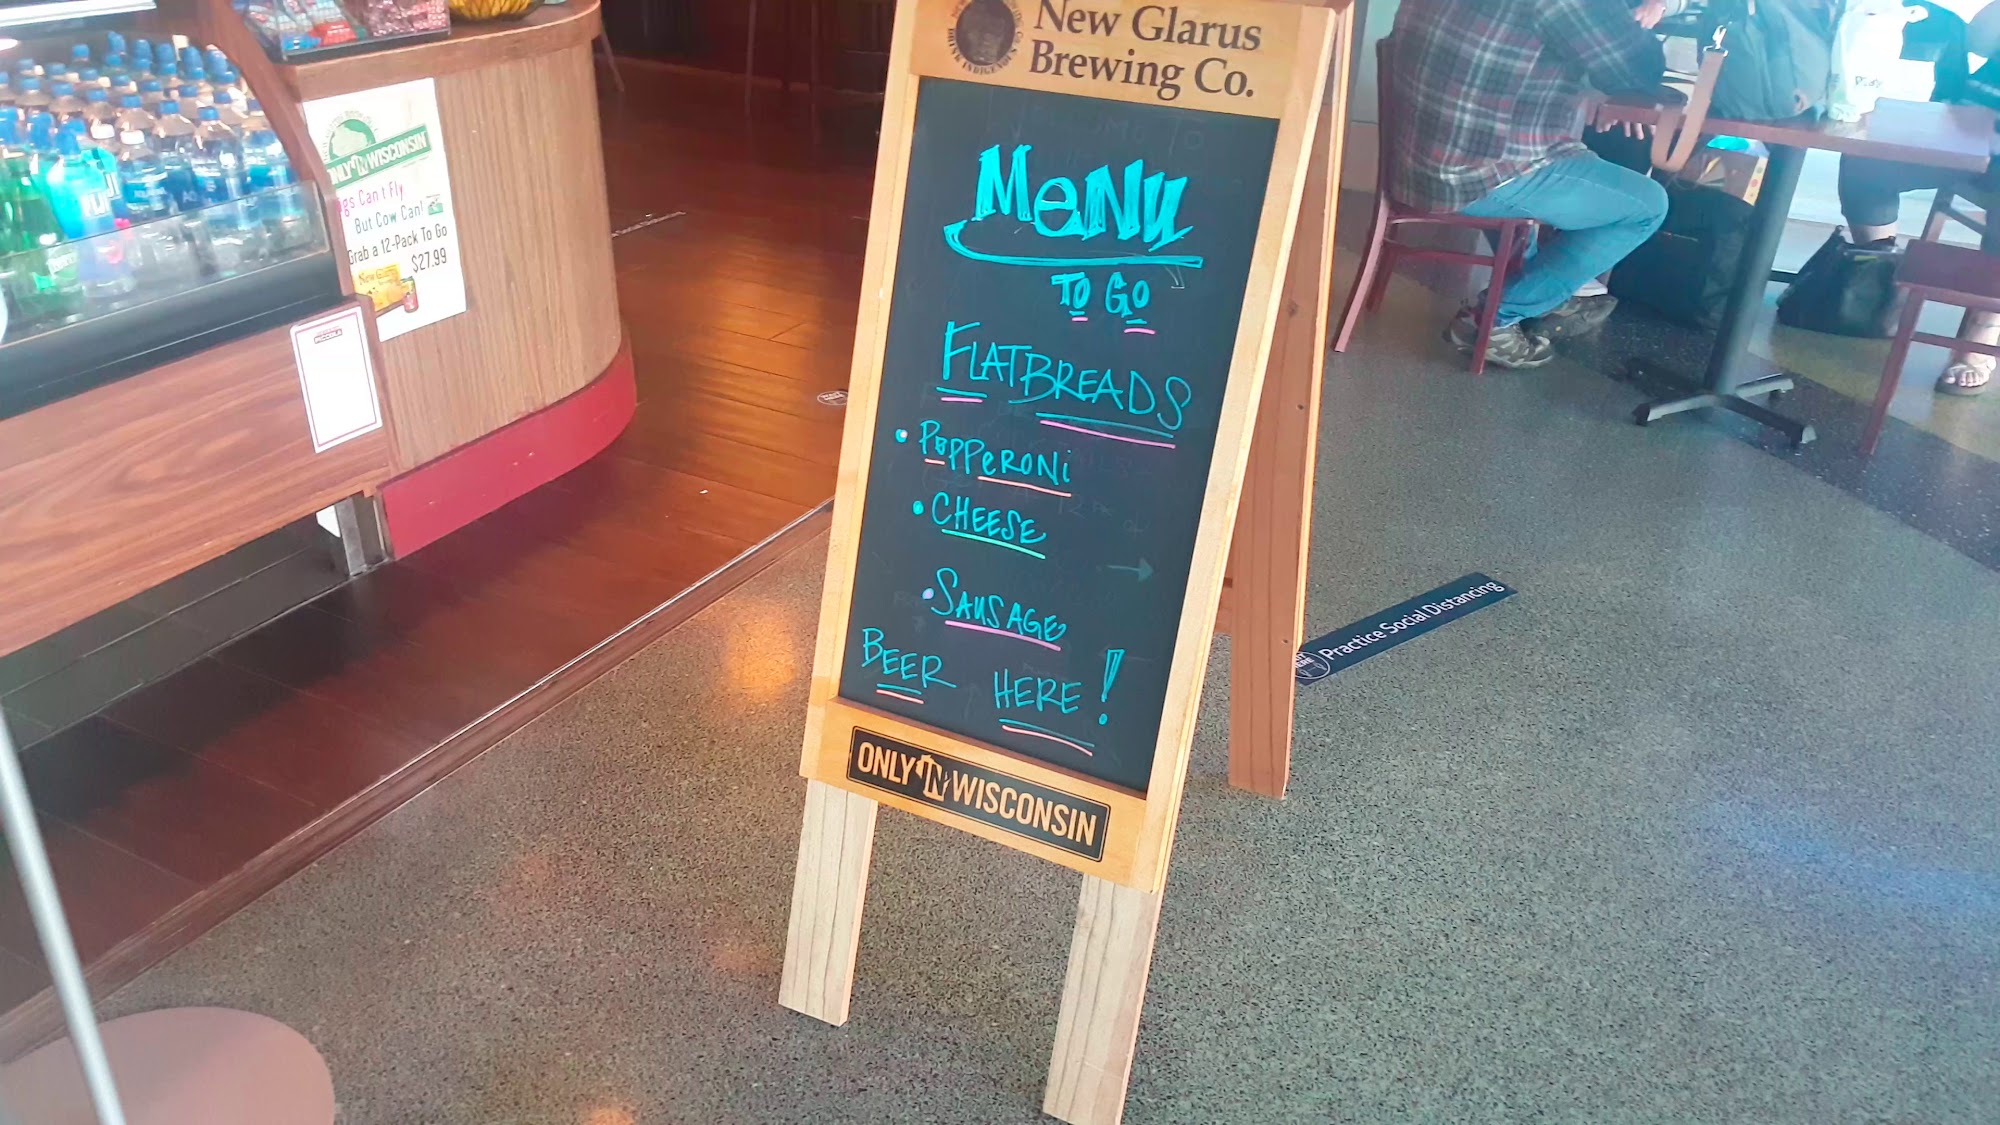 New Glarus
Brewing Co.
DRINK INDIGENOUS
MeNu
TO GO
FLATBREADS
• PEPPERONi
• CHEESE
• SAUSAGE
BEER HERE!
ONLY IN WISCONSIN
ONLY IN WISCONSIN
gs Can't Fly
But Cow Can!
Grab a 12-Pack To Go
$27.99
New Glarus
Practice Social Distancing